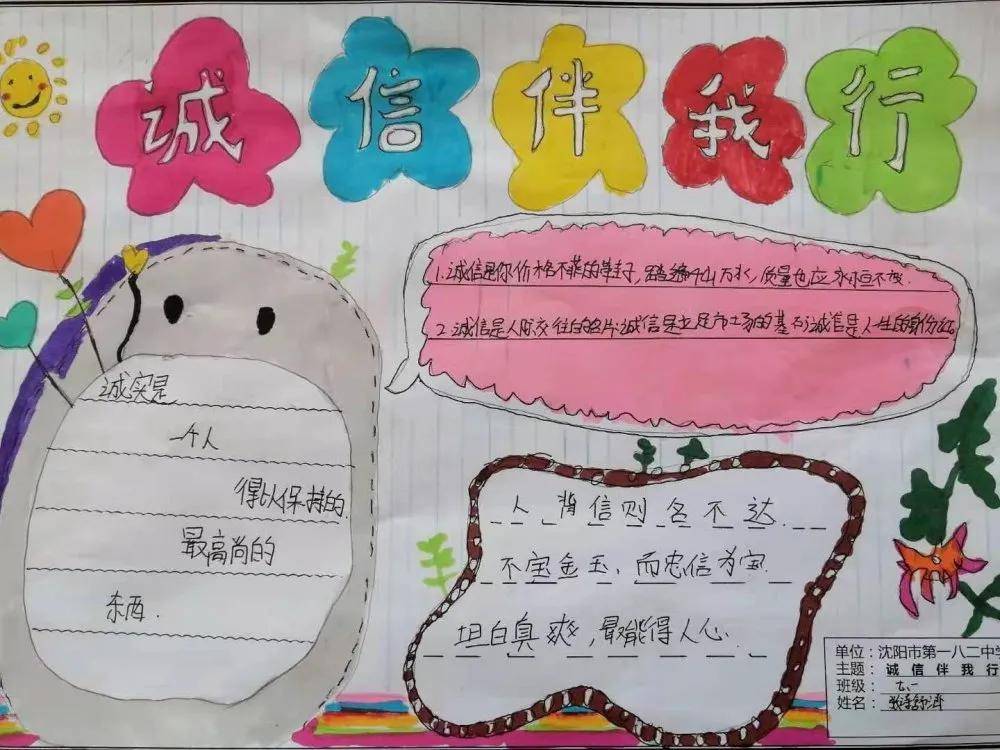 诚信伴我行
1.诚信是你价格不菲的鞋子，踏遍千山万水，质量也应永恒不变.
2.诚信是人际交往的名片；诚信是立足市场的基石；诚信是人生的身份证
诚实是
一个人
得以保持的
最高尚的
东西.
人背信则名不达.
不宝金玉，而忠信为宝.
坦白直爽，最能得人心.
单位：沈阳市第一八二中学
主题：诚信伴我行
班级：七、一
姓名：